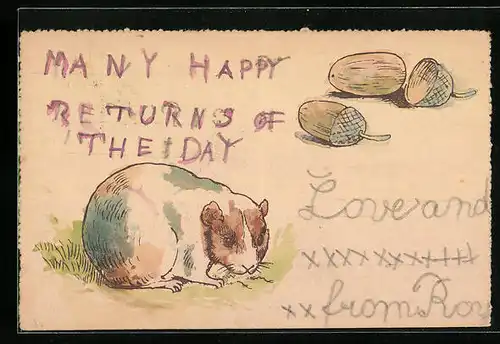 MANY HAPPY
RETURNS OF
THE DAY
Love and
xxxxxxx++++
xx from Rov